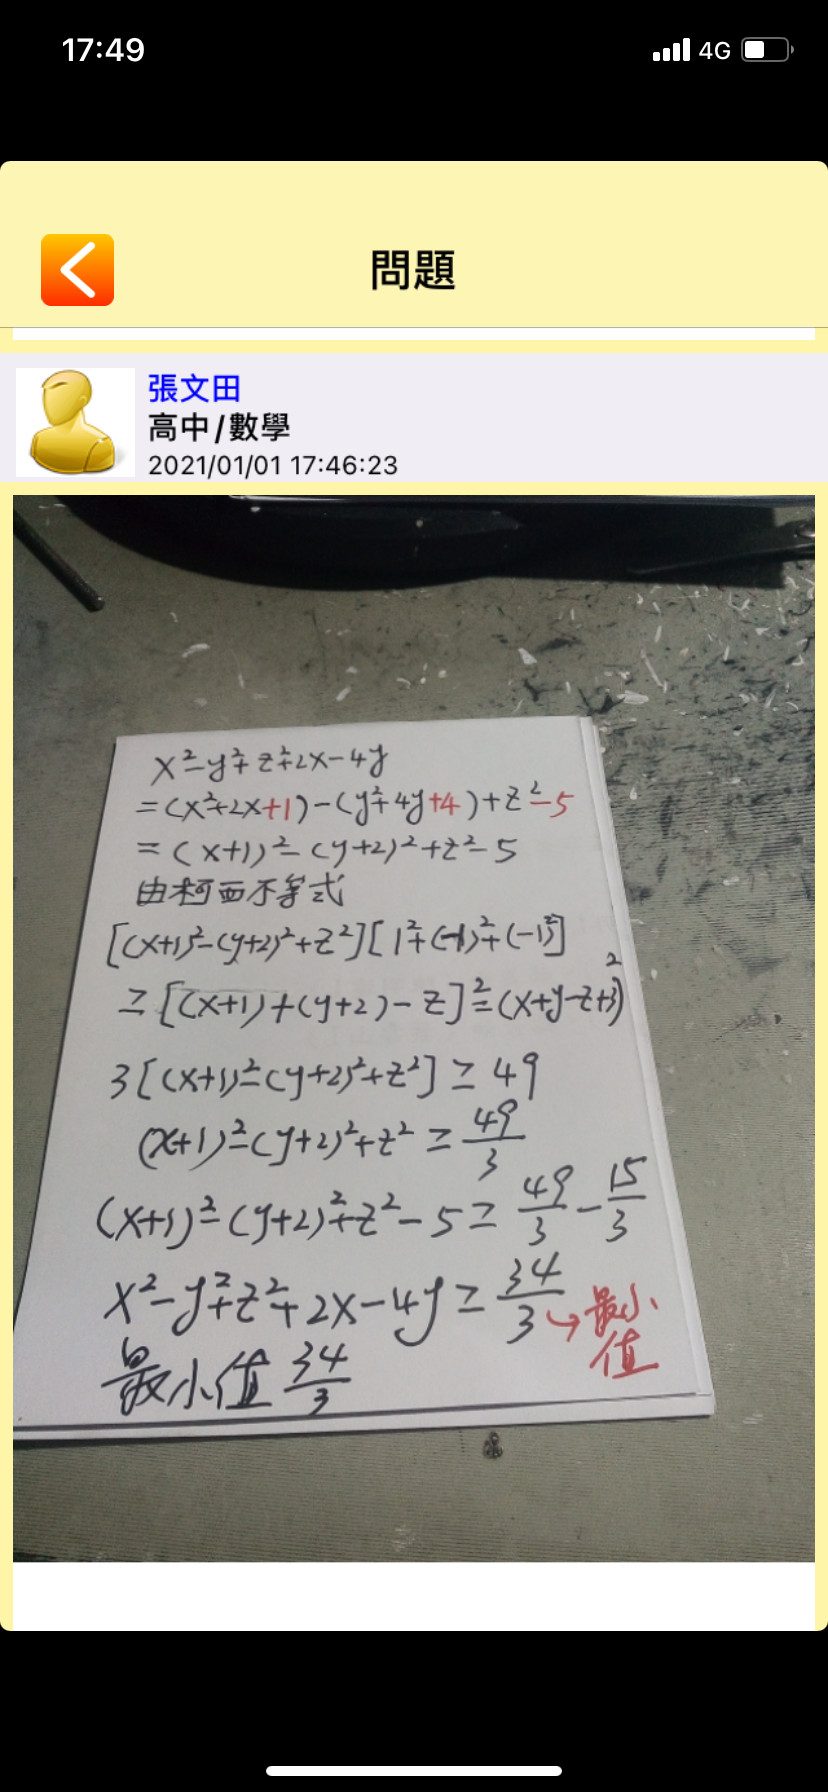 17:49
4G
問題
張文田
高中/數學
2021/01/01 17:46:23
x²-y²+z²+2x-4y
=(x²+2x+1)-(y²+4y+4)+z²-5
=(x+1)²-(y+2)²+z²-5
由柯西不等式
[(x+1)²-(y+2)²+z²][1²+(-1)²+(-1)²]
≥[(x+1)+(y+2)-z]²=(x+y-z+3)²
3[(x+1)²-(y+2)²+z²]≥49
(x+1)²-(y+2)²+z²≥49/3
(x+1)²-(y+2)²+z²-5≥49/3-15/3
x²-y²+z²+2x-4y≥34/3→最小值
最小值34/3